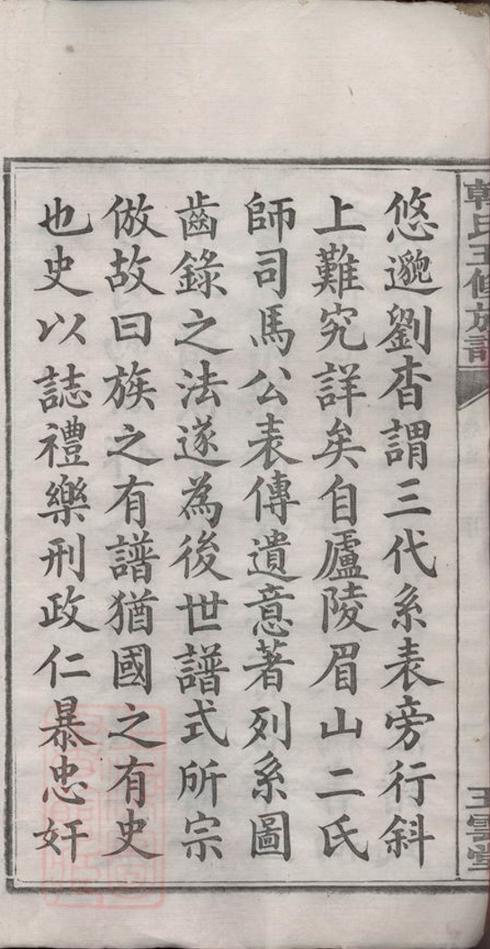 韓氏五修族譜
五雲堂
悠邈劉杳謂三代系表旁行斜
上難究詳矣自廬陵眉山二氏
師司馬公表傳遺意著列系圖
齒錄之法遂為後世譜式所宗
倣故曰族之有譜猶國之有史
也史以誌禮樂刑政仁暴忠奸